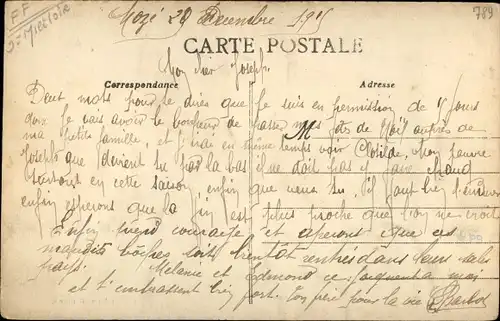 FF
789
Mozé 29 Decembre 1915
CARTE POSTALE
Mon cher Joseph
Correspondance
Adresse
Deux mots pour te dire que je suis en permission de 4 jours
donc je vais avoir le bonheur de passer mes fêtes de Noël auprès de
M
ma petite famille, et j'irai en même temps voir Clotilde, Mon pauvre
Joseph que devient tu par la bas il ne doit pas y faire chaud
surtout en cette saison, enfin que veux tu, il faut bien
enfin esperons que la fin est plus proche que l'on ne croit
Enfin prend courage, et esperons que ces
maudits bôches soit bientôt rentrés dans leurs sale
pays. Melanie et Edmond ce joignent a moi
et t'embrassent bien fort. Ton père pour la vie